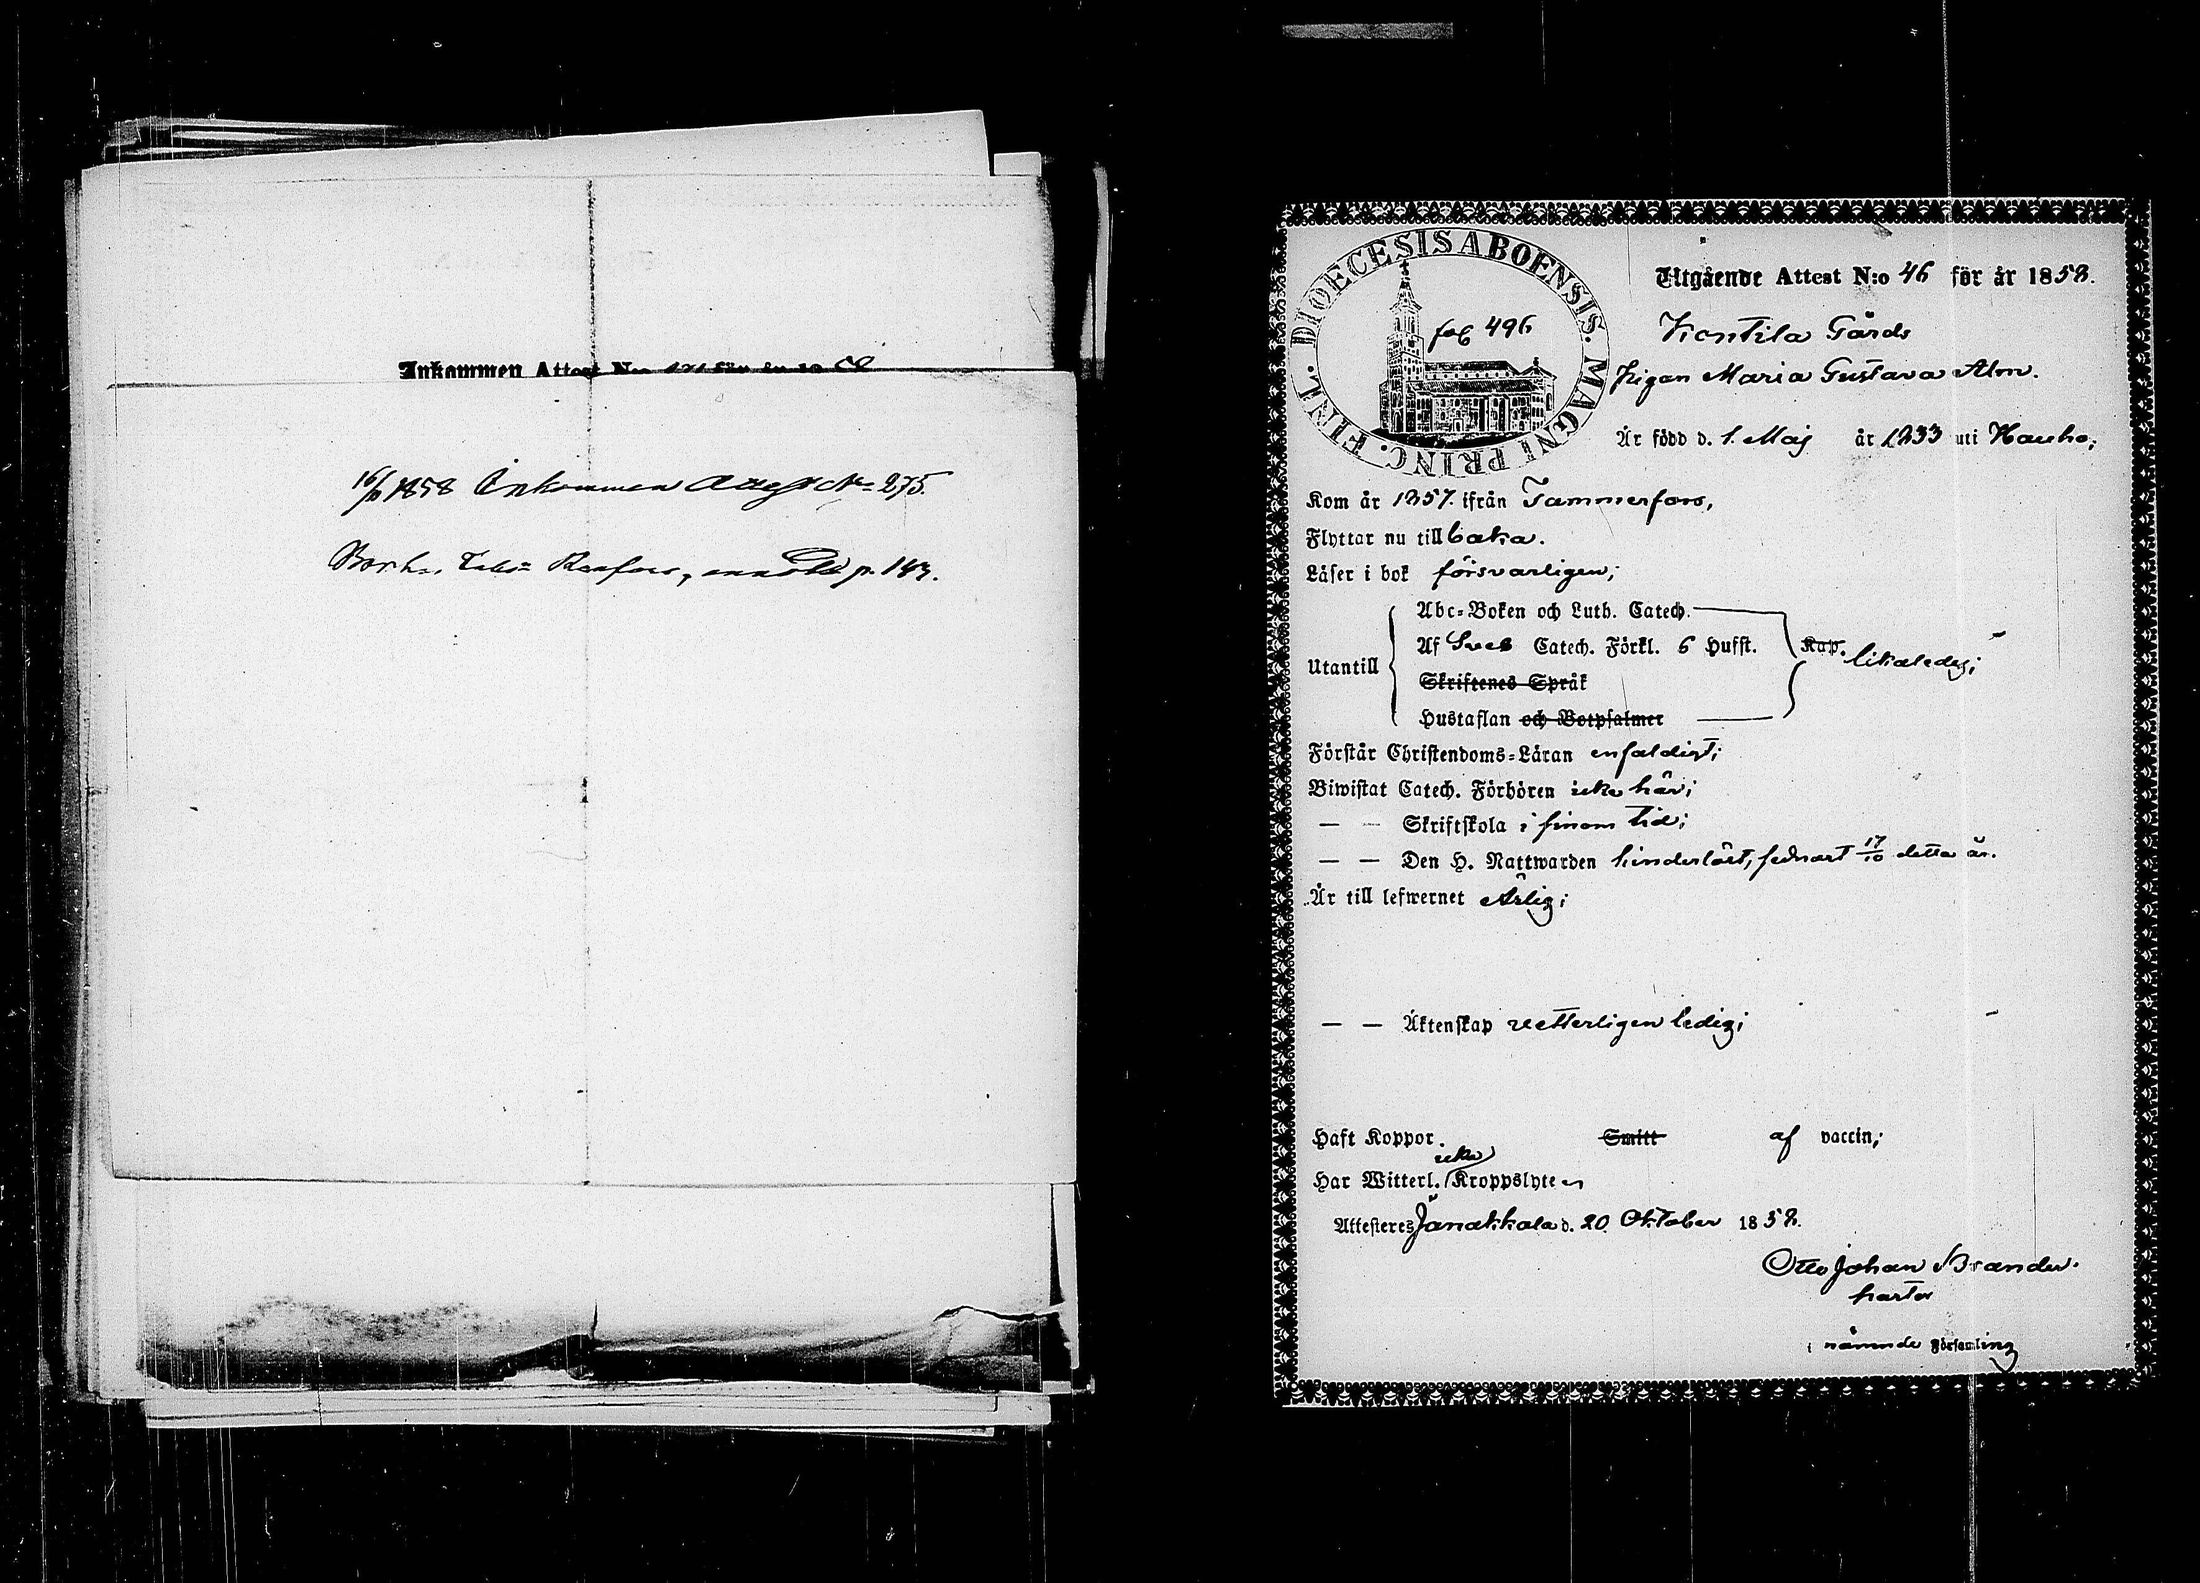 Inkommen Attest N:o 171 för år 1858
16/11 1858 Inkommen Attest N:o 275.
p. 143.
FINL. DIOECESIS ABOENSIS. MAGNI PRINC.
fol 496
Utgående Attest N:o 46 för år 1858.
Kontila Gårds
Pigan Maria Gustava Alm.
Är född d. 1. Maj år 1833 uti Hauho;
Kom år 1857. ifrån Tammerfors,
Flyttar nu till baka.
Läser i bok försvarligen;
Abc-Boken och Luth. Catech.
Utantill
Af Sveb Catech. Förkl. 6 Hufst. Kap. likaledes;
Skriftenes Språk
Hustaflan och Botpsalmer
Förstår Christendoms-Läran enfaldigt;
Biwistat Catech. Förhören icke här;
— — Skriftskola i sinom tid;
— — Den H. Nattwarden hinderlöst, sednast 17/10 detta år.
Är till lefwernet Ärlig;
— — Äktenskap vetterligen ledig;
Haft Koppor. Smitt af vaccin;
icke
Har Witterl. Kroppslyten
Attesteres Janakkala d. 20 Oktober 1858.
Otto Johan Brander.
Pastor
i nämnde Församling